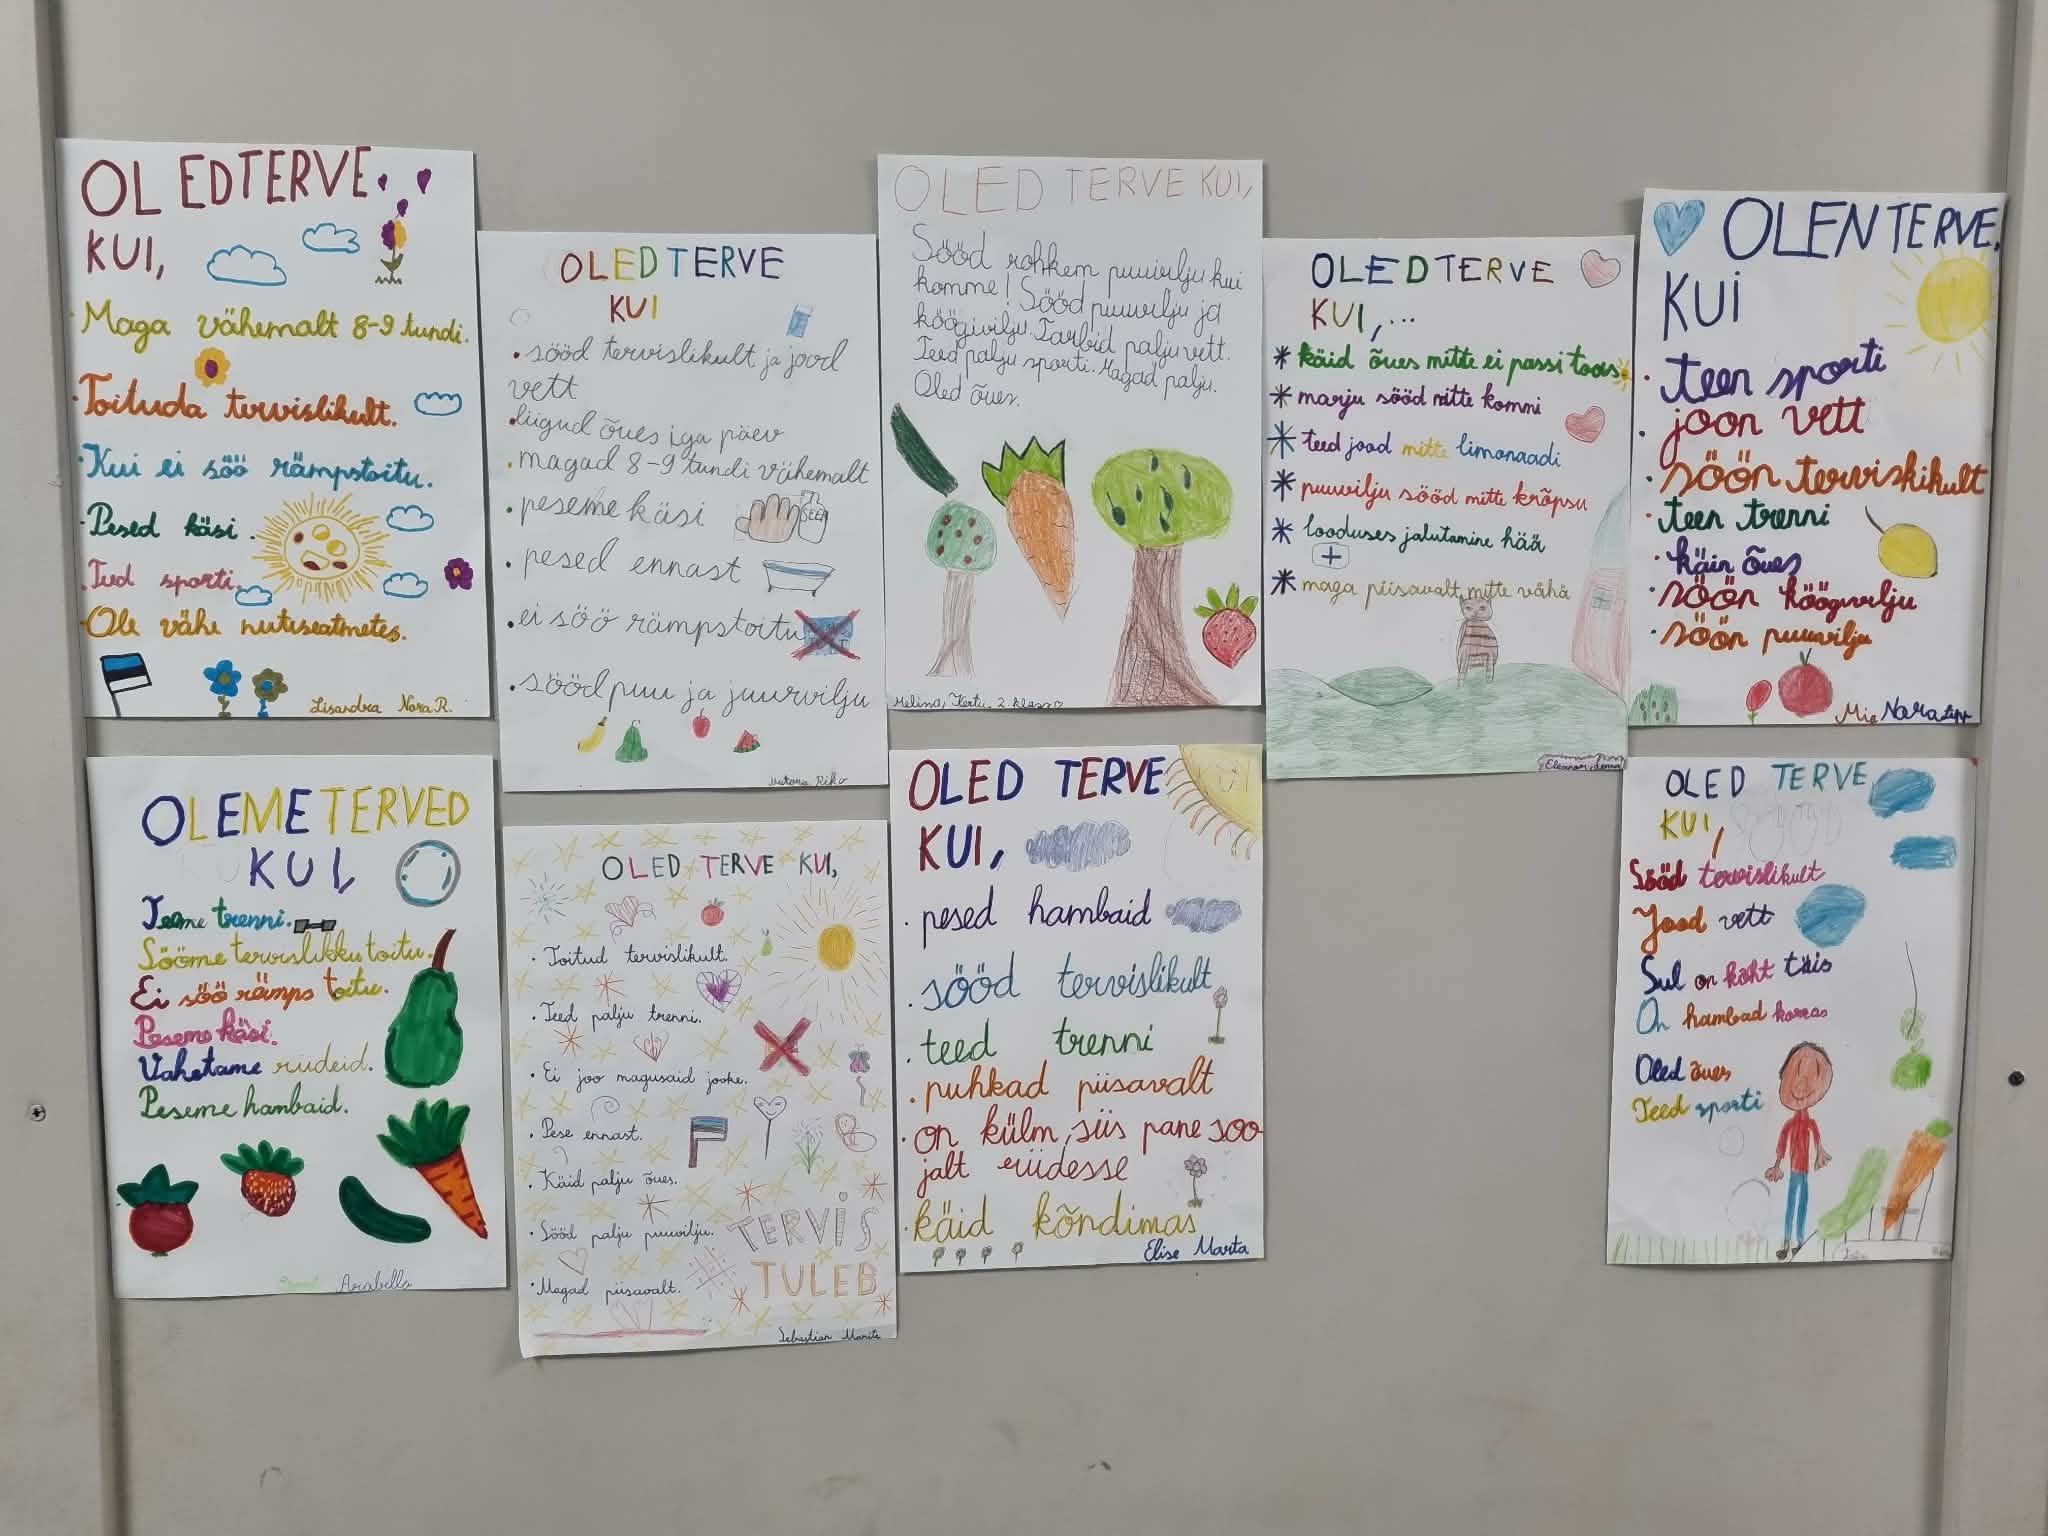 OLED TERVE,
KUI,
Maga vähemalt 8-9 tundi.
Toituda tervislikult.
Kui ei söö rämpstoitu.
Pesed käsi.
Teed sporti.
Ole vähe nutiseatmetes.
Lisandra Nora R.
OLED TERVE
KUI
sööd tervislikult ja jood
vett
liigud õues iga päev
magad 8-9 tundi vähemalt
peseme käsi
SEEP
pesed ennast
ei söö rämpstoitu
sööd puu ja juurvilju
Riko
OLED TERVE KUI,
Sööd rohkem puuvilju kui
komme! Sööd puuvilju ja
köögivilju. Tarbid palju vett.
Teed palju sporti. Magad palju.
Oled õues.
Melina, Kertu, 2. klass
OLED TERVE
KUI,...
käid õues mitte ei passi toas
marju sööd mitte kommi
teed jood mitte limonaadi
puuvilju sööd mitte krõpsu
looduses jalutamine hää
maga piisavalt mitte vähä
Eleanor
OLEN TERVE,
KUI
teen sporti
joon vett
söön terviskikult
teen trenni
käin õues
söön köögivilju
söön puuvilju
Mia Nora Lepp
OLEME TERVED
KUI,
Teeme trenni.
Sööme tervislikku toitu.
Ei söö rämps toitu.
Peseme käsi.
Vahetame riideid.
Peseme hambaid.
Arabella
OLED TERVE KUI,
Toitud tervislikult.
Teed palju trenni.
Ei joo magusaid jooke.
Pese ennast.
Käid palju õues.
Sööd palju puuvilju.
Magad piisavalt.
TERVIS
TULEB
Sebastian
OLED TERVE
KUI,
pesed hambaid
sööd tervislikult
teed trenni
puhkad piisavalt
on külm, siis pane soo
jalt riidesse
käid kõndimas
Elise Marta
OLED TERVE
KUI,
Sööd tervislikult
Jood vett
Sul on kõht täis
On hambad korras
Oled õues
Teed sporti